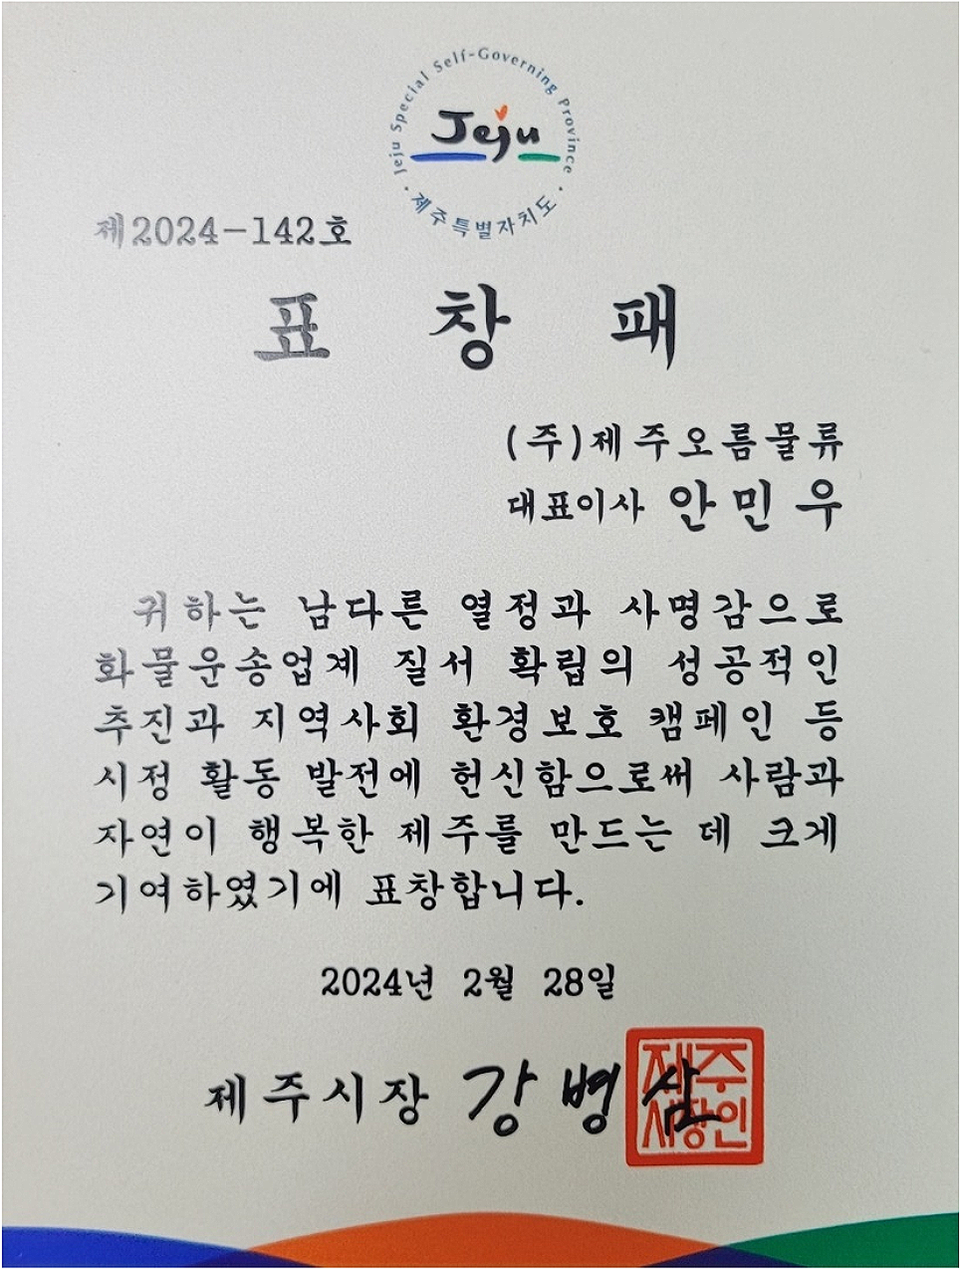 Jeju Special Self-Governing Province
Jeju
· 제주특별자치도 ·
제2024-142호
표 창 패
(주)제주오름물류
대표이사 안민우
귀하는 남다른 열정과 사명감으로
화물운송업계 질서 확립의 성공적인
추진과 지역사회 환경보호 캠페인 등
시정 활동 발전에 헌신함으로써 사람과
자연이 행복한 제주를 만드는 데 크게
기여하였기에 표창합니다.
2024년 2월 28일
제주시장 강병삼
제주
시장인